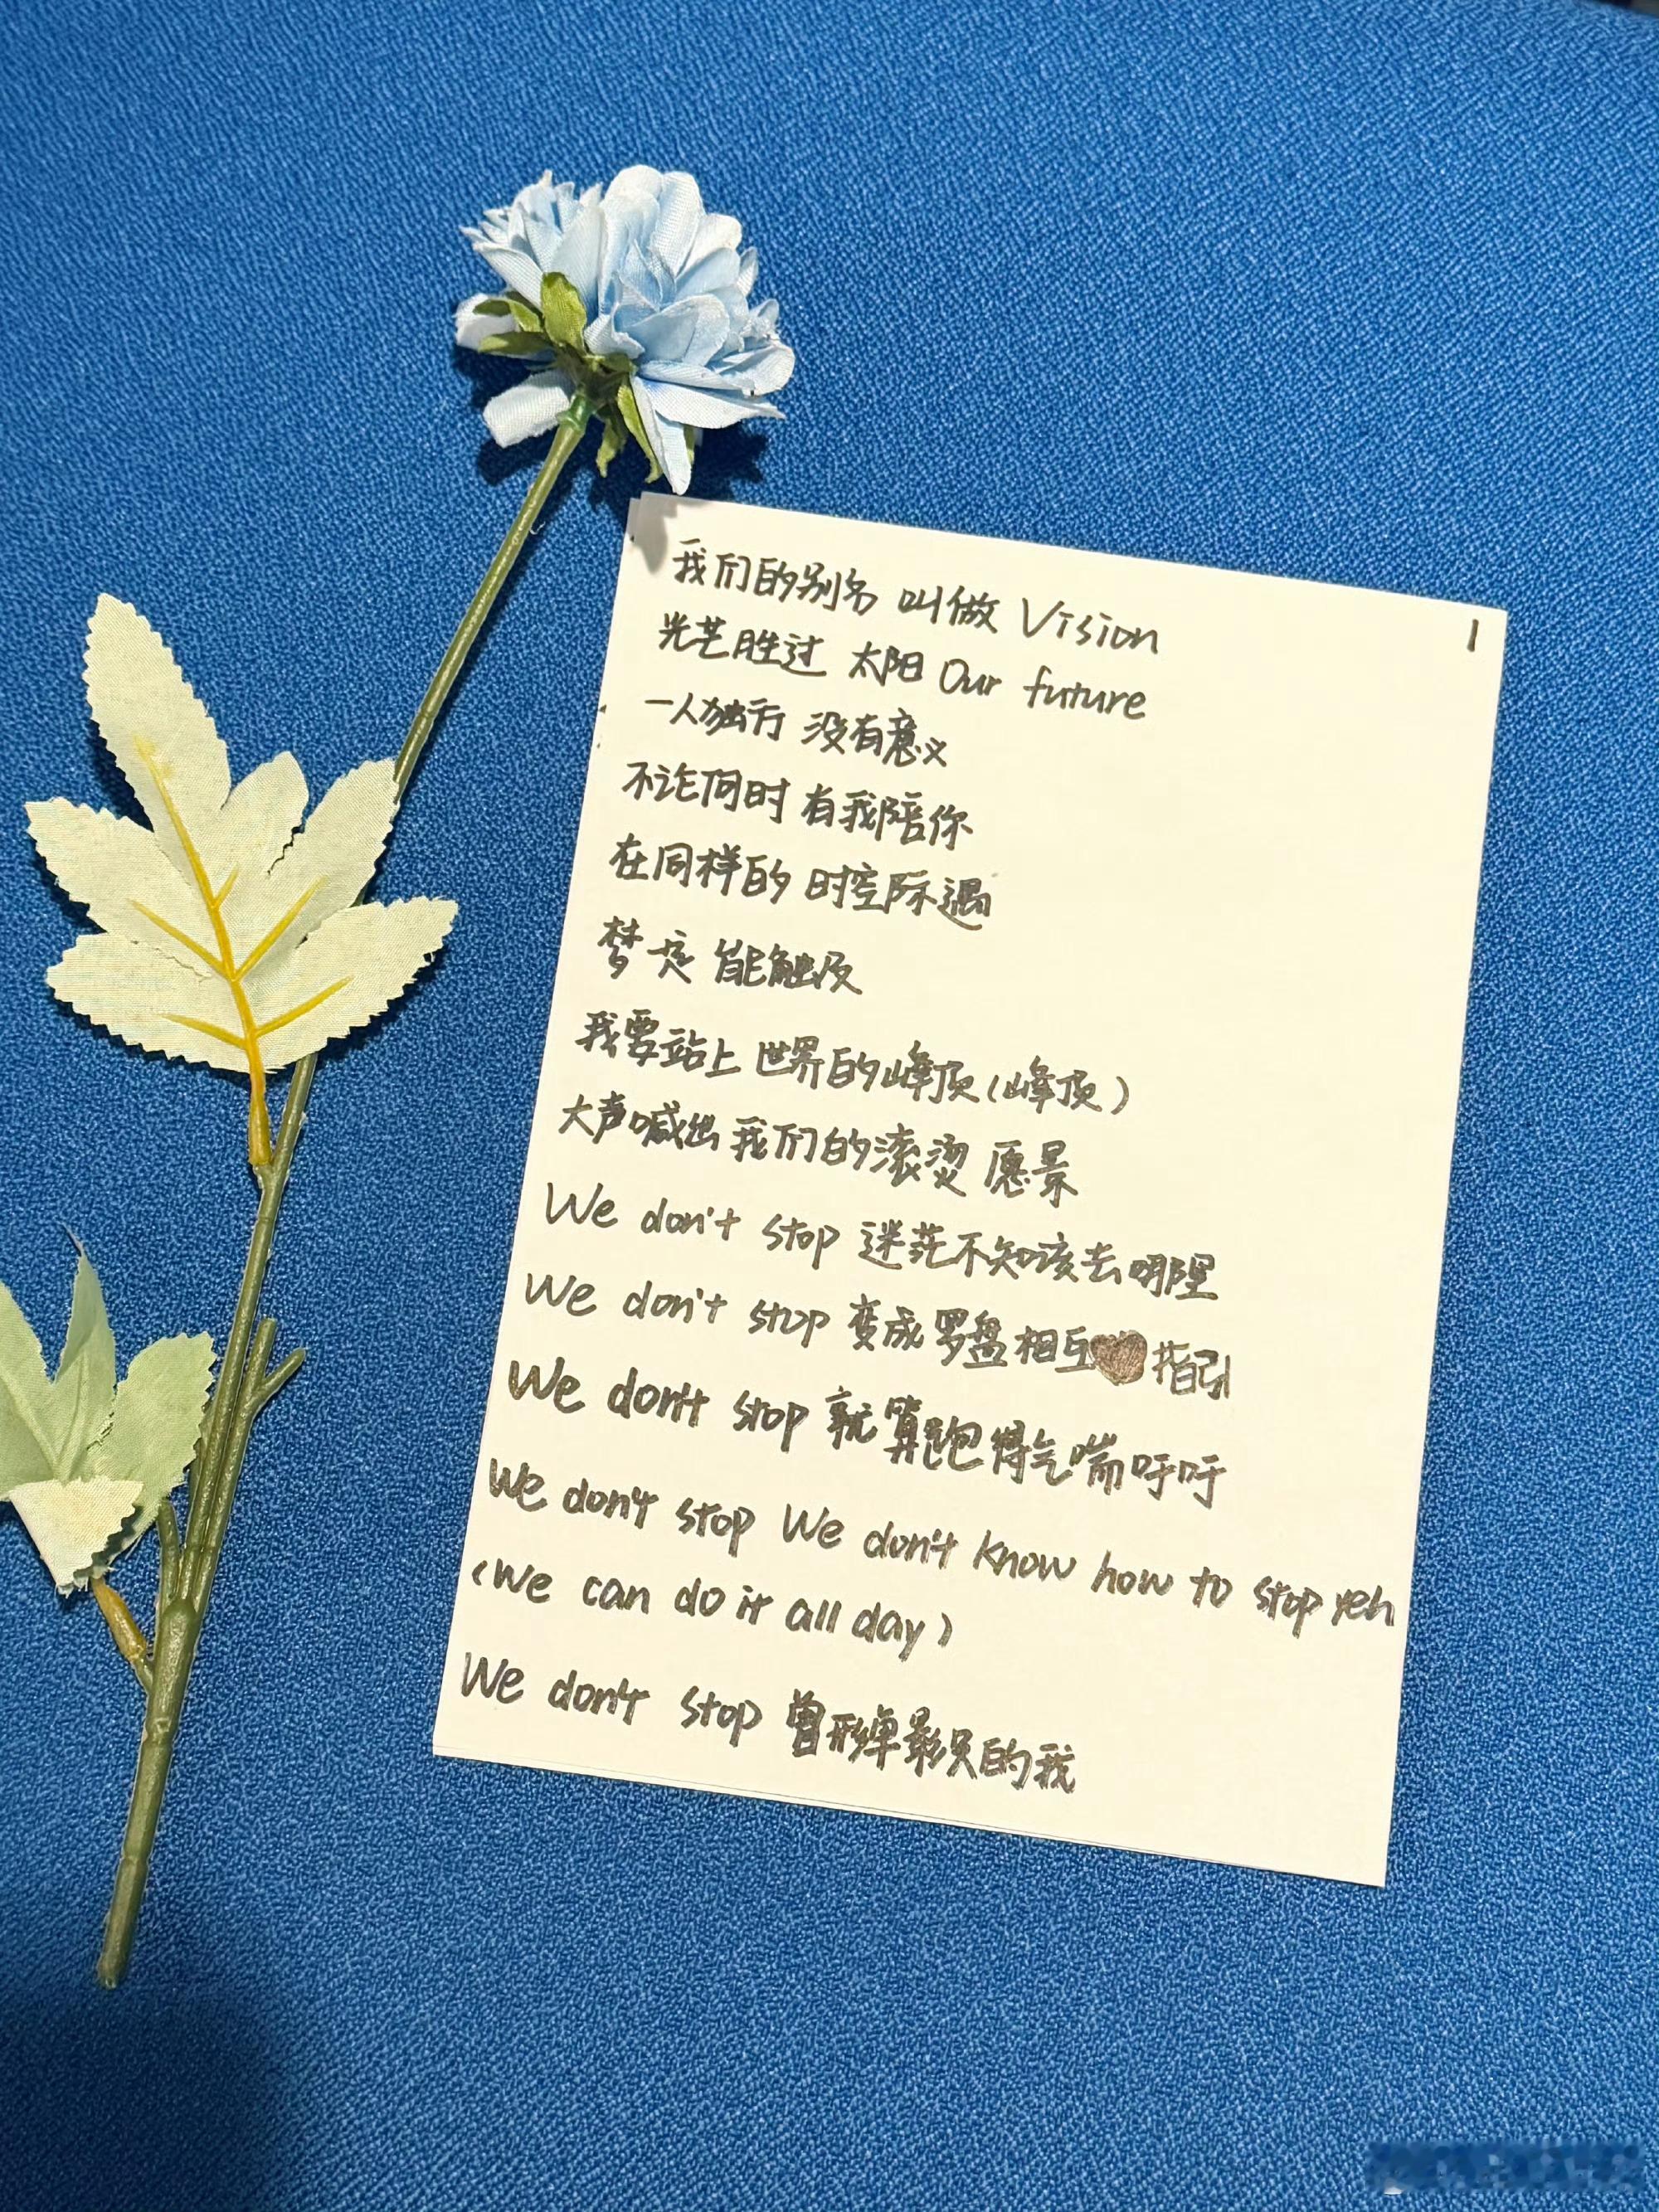 1
我们的别名 叫做 Vision
光芒胜过 太阳 Our future
一人独行 没有意义
不论何时 有我陪你
在同样的 时空际遇
梦一定 能触及
我要站上 世界的峰顶(峰顶)
大声喊出 我们的滚烫 愿景
We don't stop 迷茫不知该去哪里
We don't stop 变成罗盘相互指引
We don't stop 就算跑得气喘吁吁
We don't stop We don't know how to stop yeh
(We can do it all day)
We don't stop 曾形单影只的我